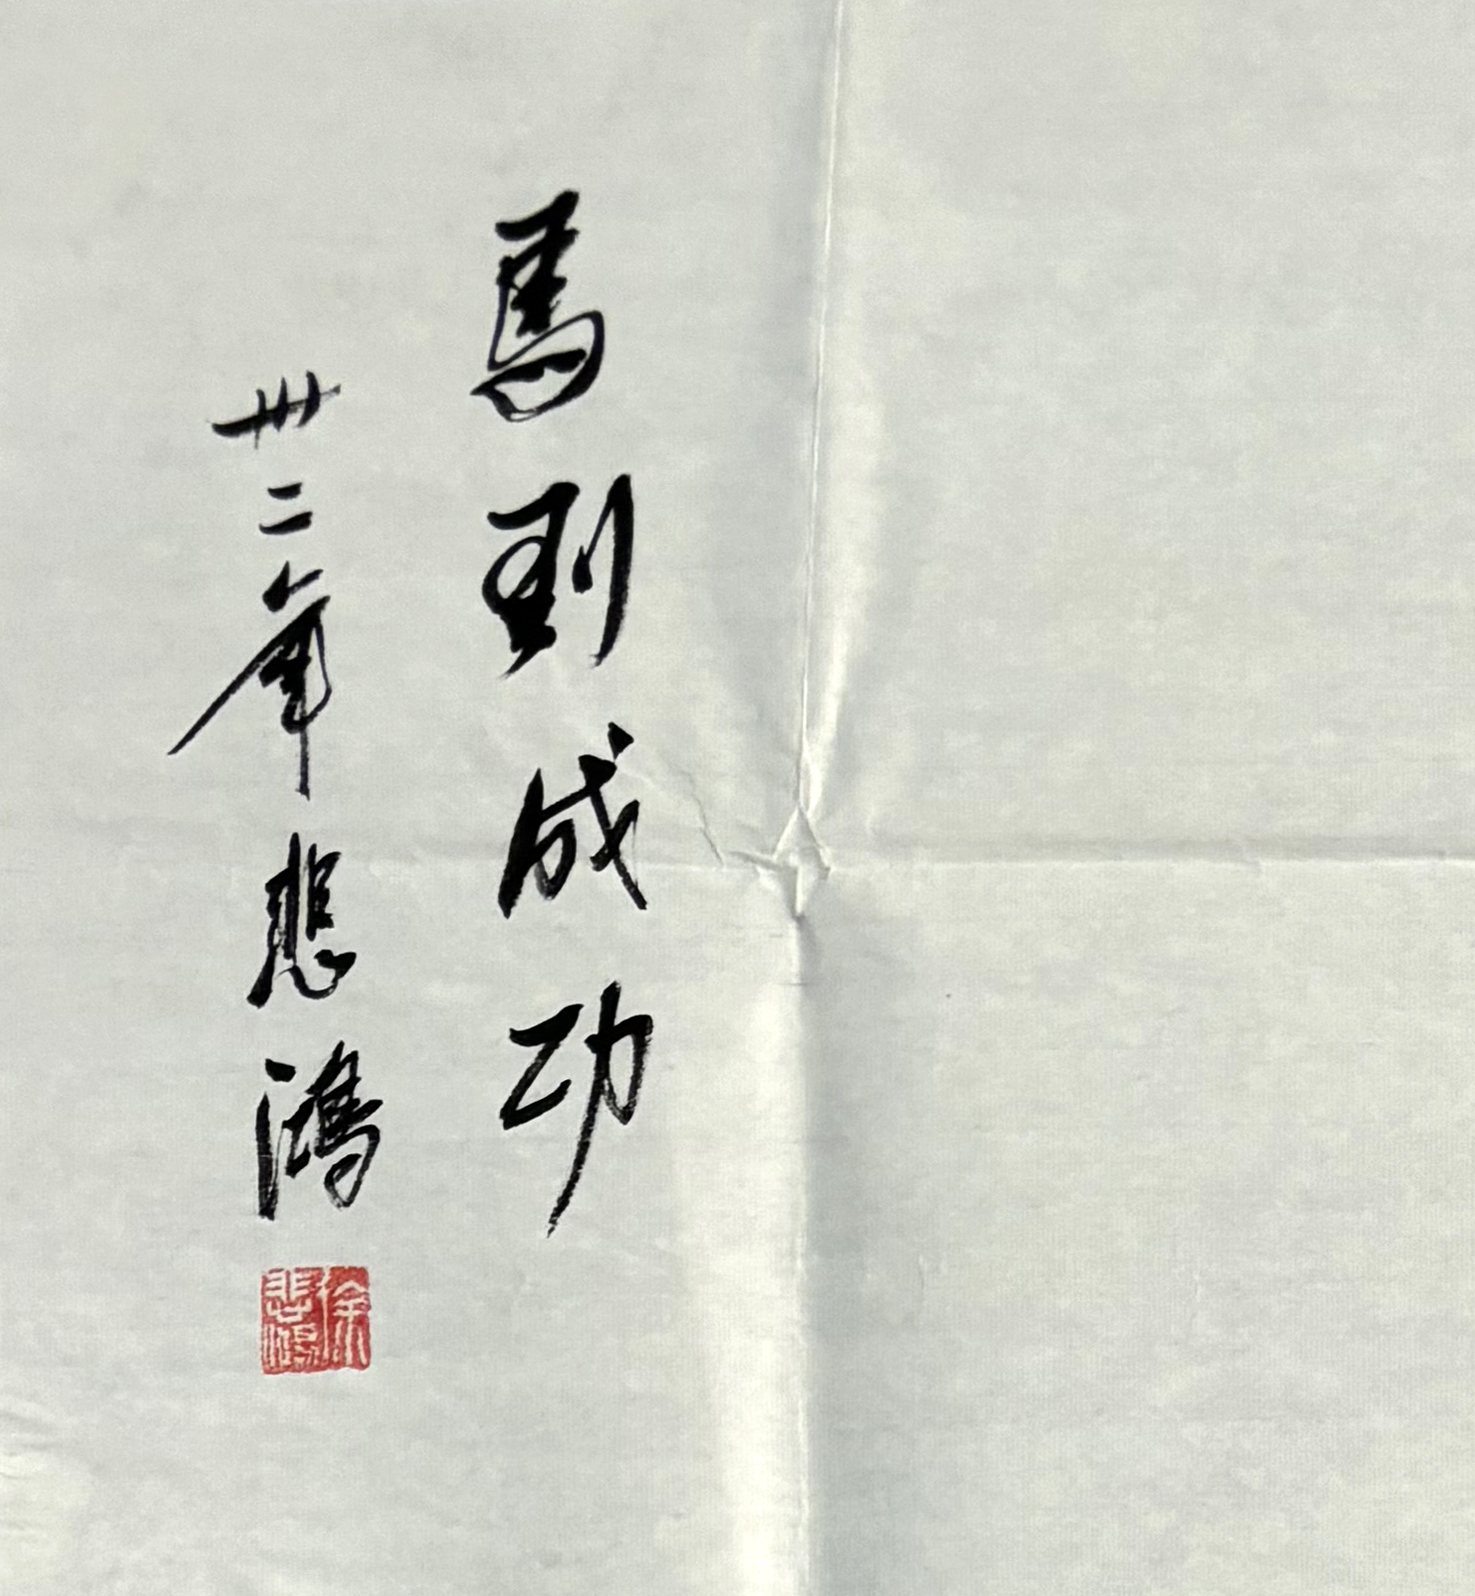 馬到成功
卅二年悲鴻
徐悲鴻